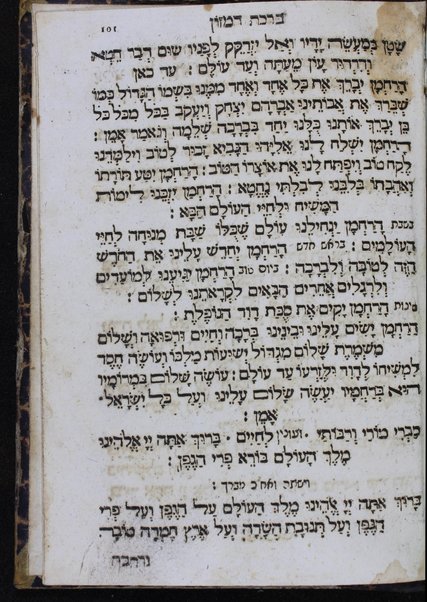 ברכת המזון
101
שטן במעשה ידיו ואל יזדקק לפניו שום דבר חטא
והרהור עון מעתה ועד עולם : עד כאן
הרחמן יברך את כל אחד ואחד ממנו בשמו הגדול כמו
שברך את אבותינו אברהם יצחק ויעקב בכל מכל כל
כן יברך אותנו כלנו יחד בברכה שלמה ונאמר אמן :
הרחמן ישלח לנו אליהו הנביא זכור לטוב וילמדנו
לקח טוב ויפתח לנו את אוצרו הטוב : הרחמן יטע תורתו
ואהבתו בלבנו לבלתי נחטא : הרחמן יזכנו לימות
המשיח ולחיי העולם הבא :
בשבת הרחמן ינחילנו עולם שכלו שבת מנוחה לחיי
העולמים : בראש חדש הרחמן יחדש עלינו את החדש
הזה לטובה ולברכה : ביום טוב הרחמן הגיענו למועדים
ולרגלים אחרים הבאים לקראתנו לשלום :
הרחמן יקים את סכת דוד הנופלת :
הרחמן ישים עלינו ובינינו ברכה וחיים ורפואה ושלום
משמרת שלום מגדול ישועות מלכו ועושה חסד
למשיחו לדוד ולזרעו עד עולם : עושה שלום במרומיו
הוא ברחמיו יעשה שלום עלינו ועל כל ישראל·
אמן :
סברי מורי ורבותי · ועונין לחיים · ברוך אתה יי אלהינו
מלך העולם בורא פרי הגפן :
וישתה ואח״כ מברך :
ברוך אתה יי אלהינו מלך העולם על הגפן ועל פרי
הגפן ועל תנובת השדה ועל ארץ חמדה טובה
ורחבה